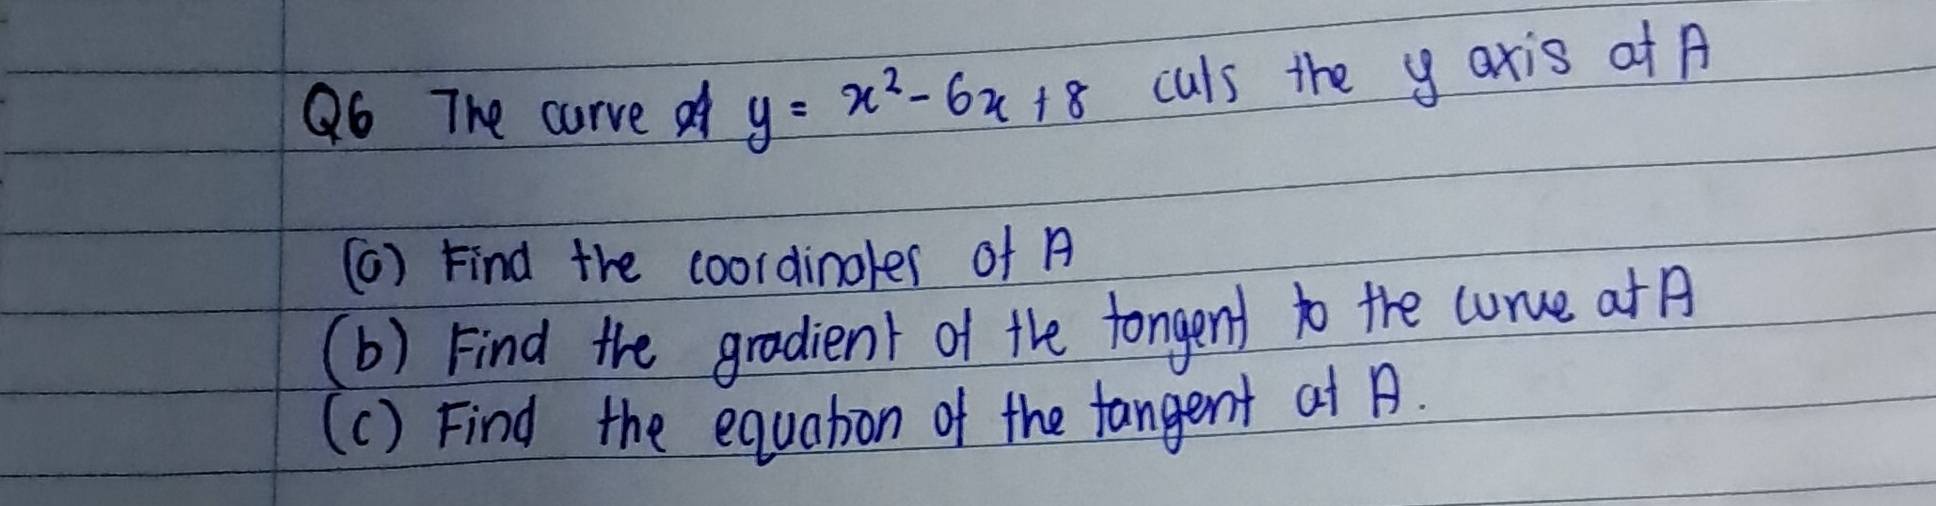 Q6 The curve of y = x² - 6x + 8 cuts the y axis at A
(a) Find the coordinates of A
(b) Find the gradient of the tangent to the curve at A
(c) Find the equation of the tangent at A.